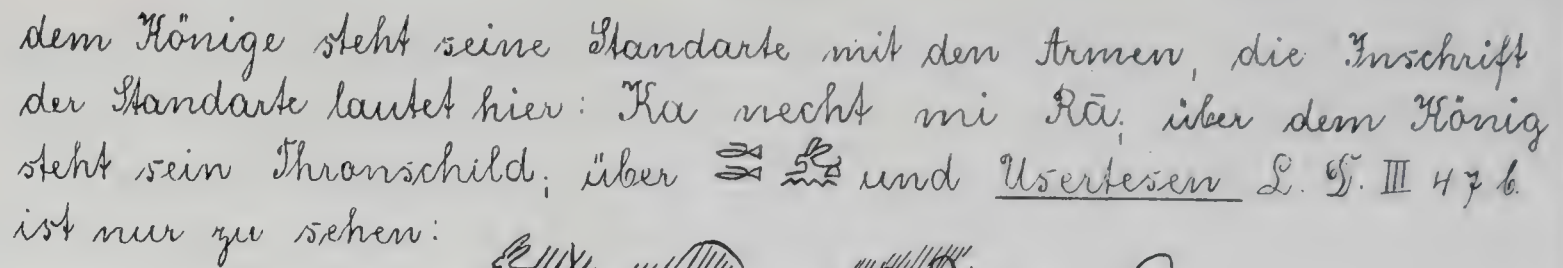 dem Könige steht seine Standarte mit den Armen, die Inschrift
der Standarte lautet hier: Ka necht mi Rā; über dem König
steht sein Thronschild; über und Usertesen L. D. III 47 b.
ist nur zu sehen: